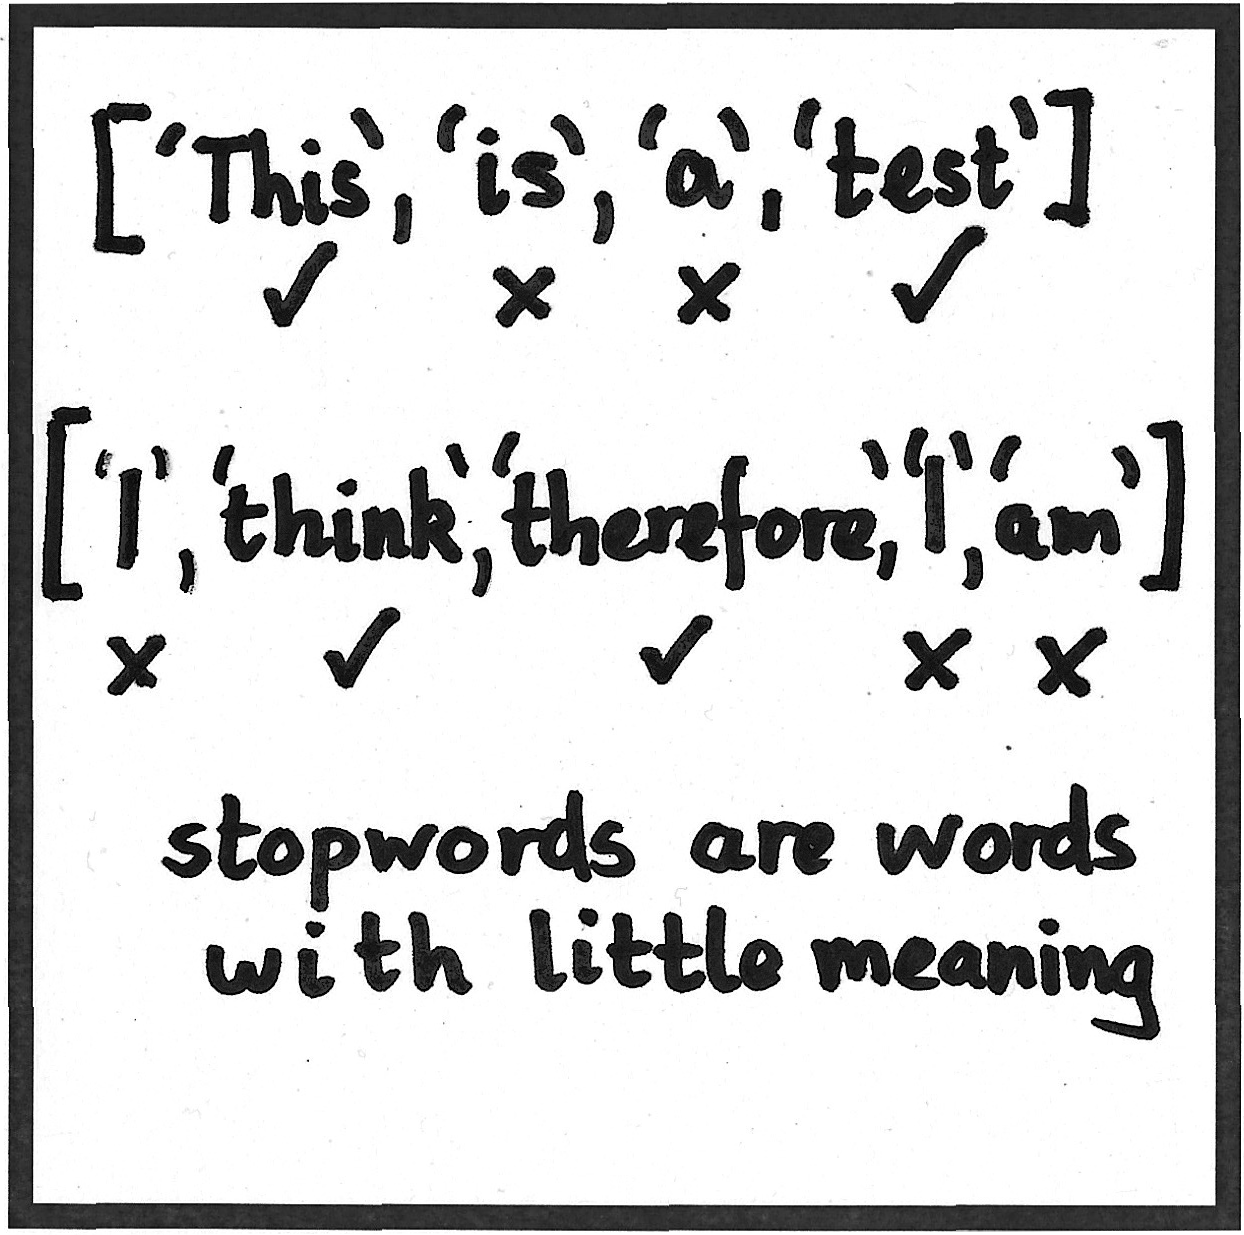 ['This', 'is', 'a', 'test']
✓ × × ✓
['I', 'think', 'therefore,' 'I', 'am']
× ✓ ✓ × ×
stopwords are words
with little meaning